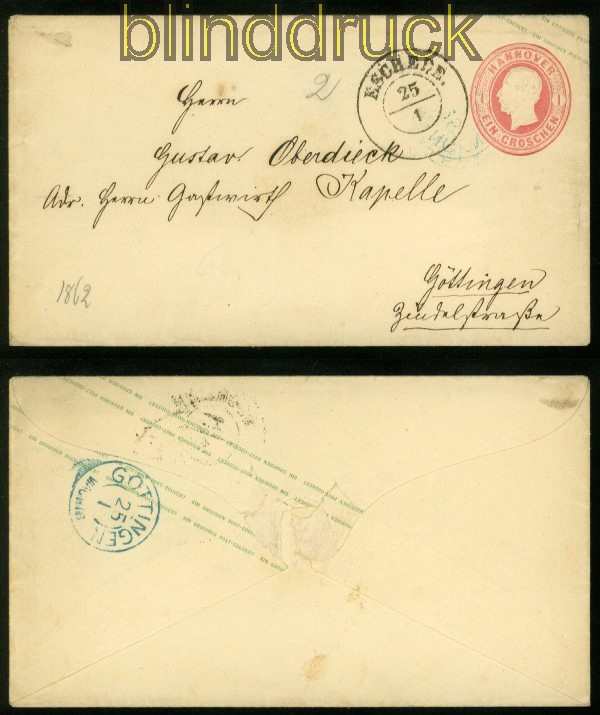 blinddruck
HANNOVER
1 1
EIN GROSCHEN
ESCHEDE.
25
1
2
Herrn
Gustav Oberdieck
Adr. Herrn Gastwirth Kapelle
Göttingen
Zindelstraße
1862
EIN GROSCHEN POST-COUVERT. EIN GROSCHEN POST-COUVERT. EIN GROSCHEN POST-COUVERT.
GÖTTINGEN
25
1